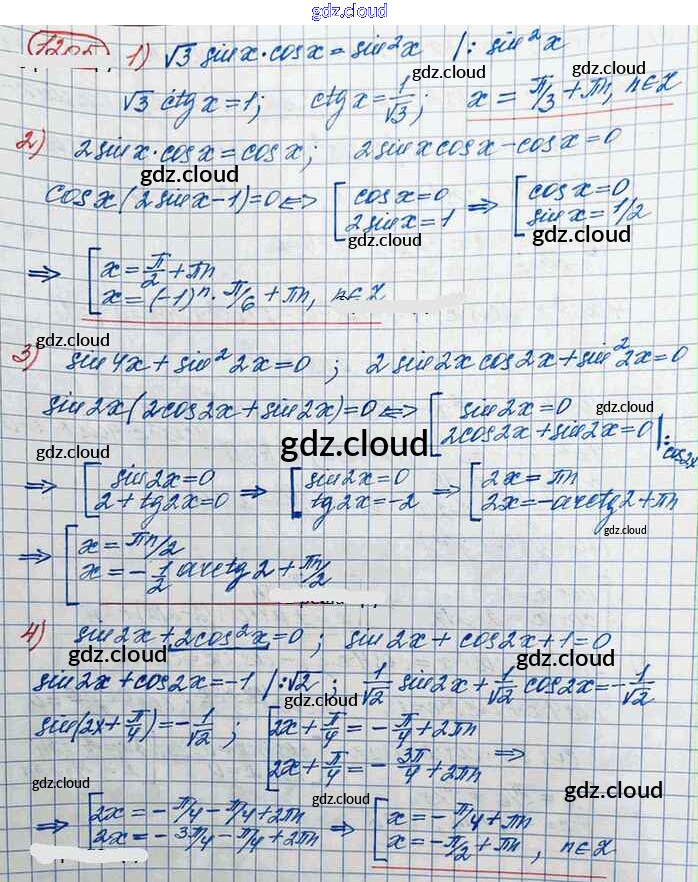 gdz.cloud
1205 1) √3 sin x · cos x = sin²x /: sin²x
gdz.cloud
√3 ctg x = 1; ctg x = 1/√3; x = π/3 + πn, n∈Z
gdz.cloud
2) 2 sin x · cos x = cos x; 2 sin x cos x − cos x = 0
gdz.cloud
cos x (2 sin x − 1) = 0 <=> [ cos x = 0 ; 2 sin x = 1 => [ cos x = 0 ; sin x = 1/2
gdz.cloud gdz.cloud
=> [ x = π/2 + πn
x = (−1)ⁿ · π/6 + πn, n∈Z
gdz.cloud
3) sin 4x + sin² 2x = 0 ; 2 sin 2x cos 2x + sin² 2x = 0
gdz.cloud
sin 2x (2 cos 2x + sin 2x) = 0 <=> [ sin 2x = 0 ; 2 cos 2x + sin 2x = 0 |: cos 2x
gdz.cloud gdz.cloud gdz.cloud
=> [ sin 2x = 0 ; 2 + tg 2x = 0 => [ sin 2x = 0 ; tg 2x = −2 => [ 2x = πn ; 2x = −arctg 2 + πn
gdz.cloud
=> [ x = πn/2
x = −1/2 arctg 2 + πn/2
gdz.cloud
4) sin 2x + 2cos²x = 0 ; sin 2x + cos 2x + 1 = 0
gdz.cloud gdz.cloud
sin 2x + cos 2x = −1 /: √2 ; 1/√2 sin 2x + 1/√2 cos 2x = −1/√2
gdz.cloud
sin(2x + π/4) = −1/√2 ; [ 2x + π/4 = −π/4 + 2πn ; 2x + π/4 = −3π/4 + 2πn =>
gdz.cloud gdz.cloud gdz.cloud
=> [ 2x = −π/4 − π/4 + 2πn ; 2x = −3π/4 − π/4 + 2πn => [ x = −π/4 + πn ; x = −π/2 + πn, n∈Z
gdz.cloud gdz.cloud